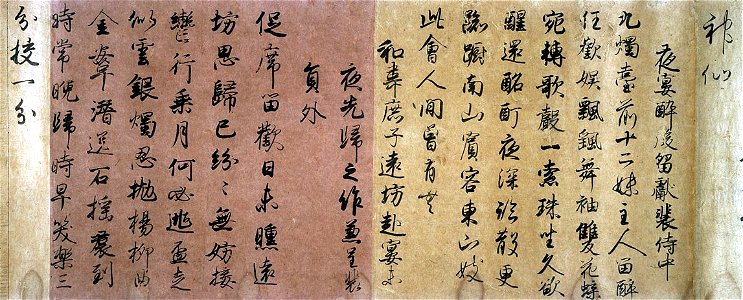 神仙
夜宴醉後留獻裴侍中
九燭臺前十二姝主人留醉
任歡娛飄颻舞袖雙飛蝶
宛轉歌聲一索珠坐久欲
醒還酩酊夜深臨散更
踟躕南山賓客東山妓
此會人間曾有無
和韋庶子遠坊赴宴未
夜先歸之作兼呈裴
員外
促席留歡日未曛遠
坊思歸已紛々無妨按
轡行乘月何必逃盃走
似雲銀燭忍拋楊柳曲
金鞍潛送石榴裙到
時常晚歸時早笑樂三
分校一分